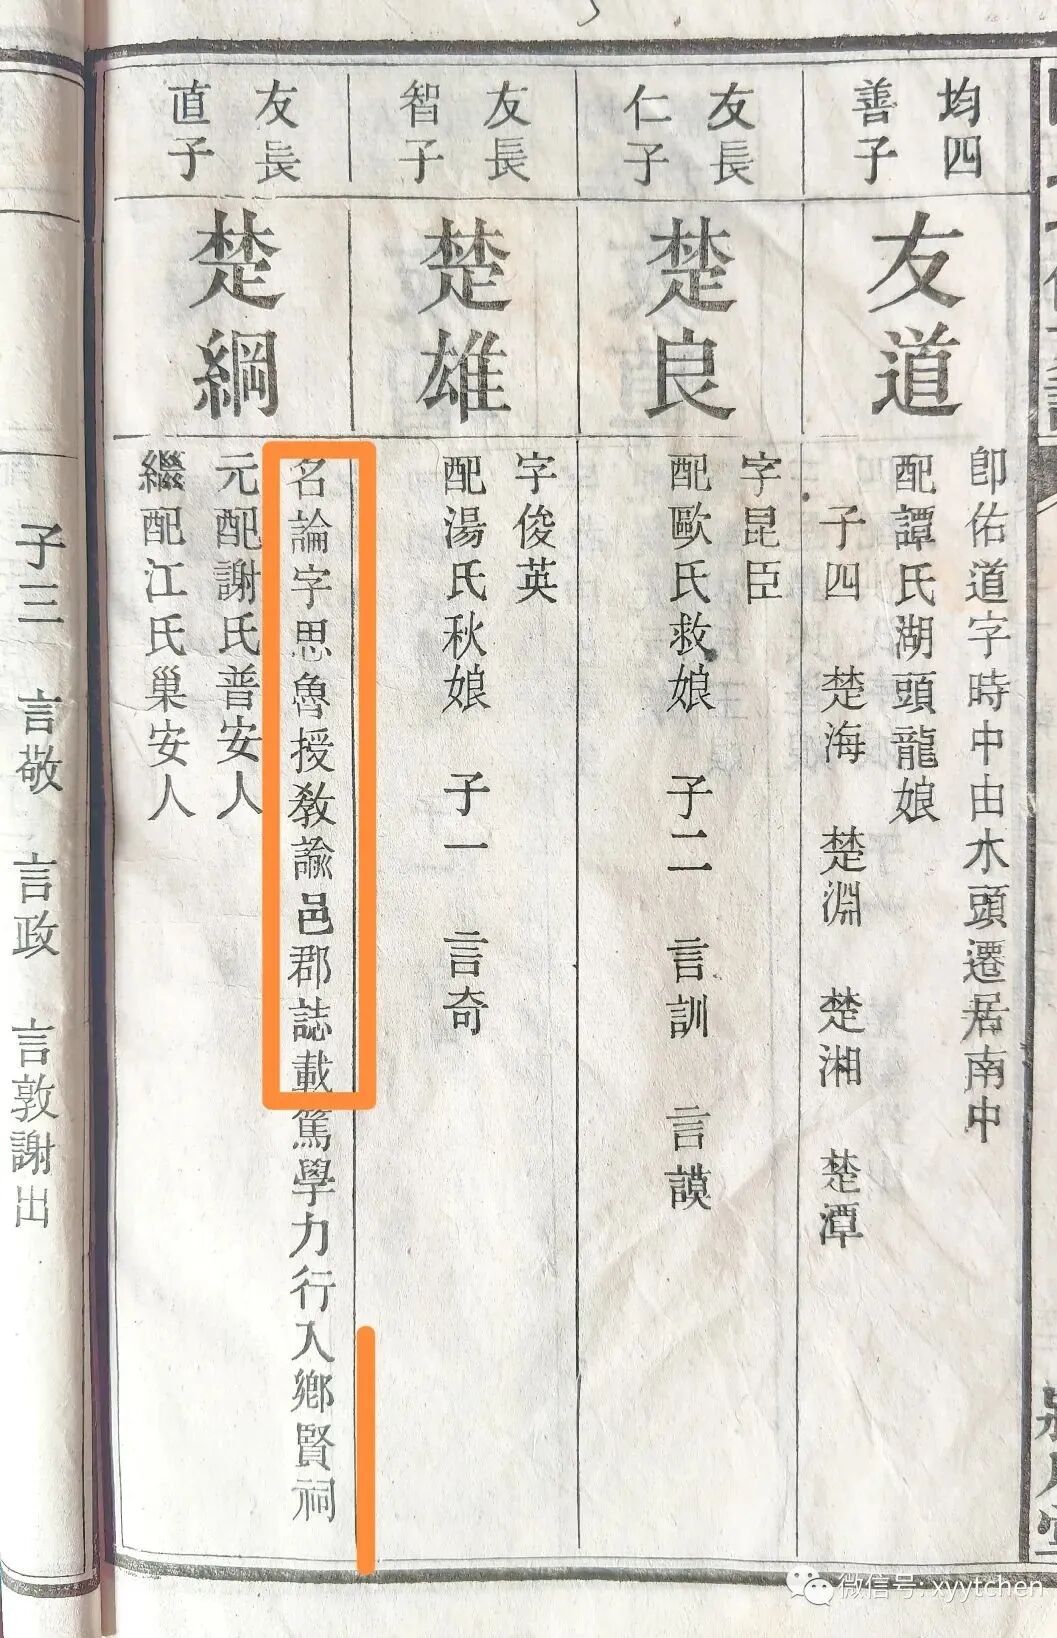 均四
善子
友道
卽佑道字時中由水頭遷居南中
配譚氏湖頭龍娘
子四 楚海 楚淵 楚湘 楚潭
友長
仁子
楚良
字昆臣
配歐氏救娘 子二 言訓 言謨
友長
智子
楚雄
字俊英
配湯氏秋娘 子一 言奇
友長
直子
楚綱
名論字思魯授教諭邑郡誌載篤學力行入鄉賢祠
元配謝氏普安人
繼配江氏巢安人
子三 言敬 言政 言敦謝出
微信号: xyytchen